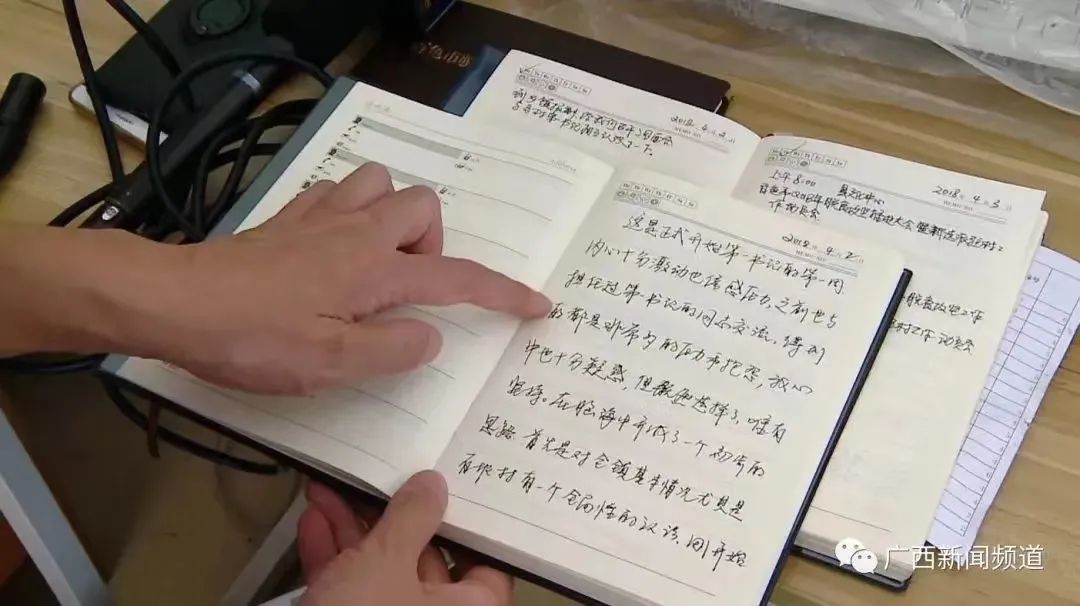 到乡镇报到,
2018 4 2
MEMO NO.
上午8:00
2018 4 3
MEMO NO.
百色市2018年脱贫攻坚推进大会暨新选派驻村工
作动员会
脱贫攻坚工作
村工作动员会
2018 4 2
MEMO NO.
这是正式开始第一书记的第一周,
内心十分激动也倍感压力,之前也与
担任过第一书记的同志交流,得到
的都是非常多的压力和抱怨,我心
中也十分疑惑,但既然选择了,唯有
坚持。在脑海中形成了一个初步的
思路,首先是对全镇基本情况尤其是
百坭村有一个全局性的认识,刚开始
广西新闻频道